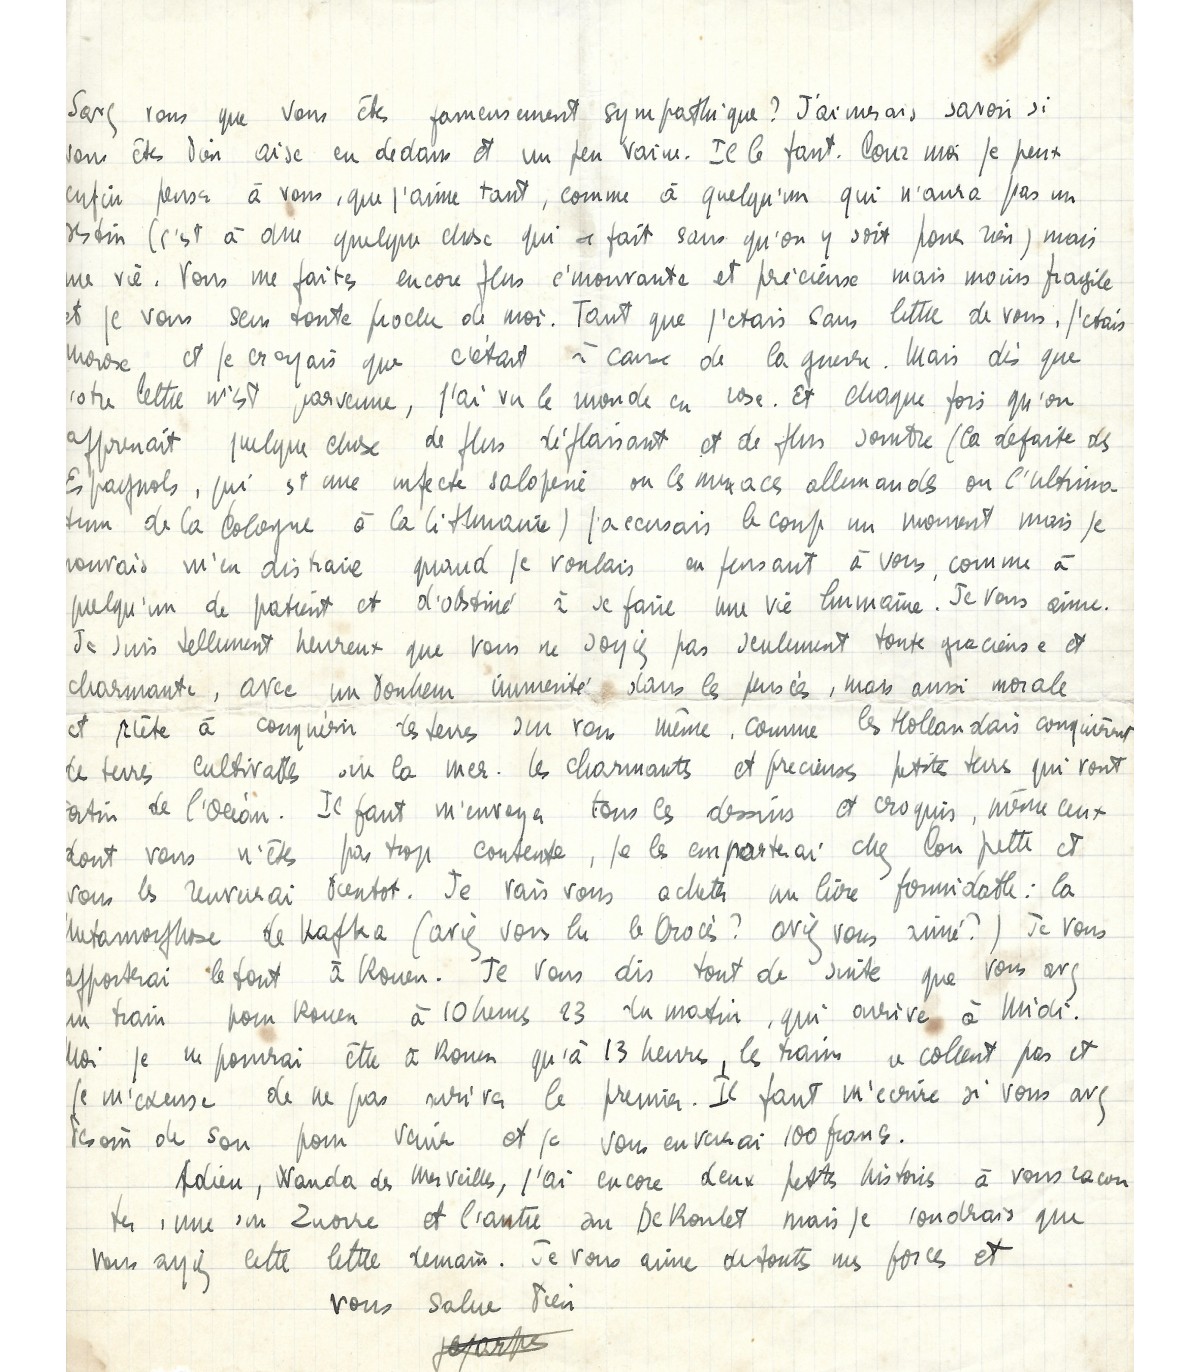 Savez vous que vous êtes fameusement sympathique? J'aimerais savoir si
vous êtes bien aise en dedans et un peu vaine. Il le faut. Pour moi je peux
enfin penser à vous, que j'aime tant, comme à quelqu'un qui n'aura pas un
destin (c'est à dire quelque chose qui se fait sans qu'on y soit pour rien) mais
une vie. Vous me faites encore plus émouvante et précieuse mais moins fragile
et je vous sens toute proche de moi. Tant que j'étais sans lettre de vous, j'étais
morose et je croyais que c'était à cause de la guerre. Mais dès que
votre lettre m'est parvenue, j'ai vu le monde en rose. Et chaque fois qu'on
apprenait quelque chose de plus déplaisant et de plus sombre (la défaite des
Espagnols, qui est une infecte saloperie ou les menaces allemandes ou l'ultima-
tum de la Pologne à la Lithuanie) j'accusais le coup un moment mais je
pouvais m'en distraire quand je voulais en pensant à vous, comme à
quelqu'un de patient et d'obstiné à se faire une vie humaine. Je vous aime.
Je suis tellement heureux que vous ne soyiez pas seulement toute gracieuse et
charmante, avec un bonheur immérité dans les pensées, mais aussi morale
et prête à conquérir des terres sur vous même, comme les Hollandais conquièrent
des terres cultivables sur la mer. Les charmantes et precieuses petites terres qui vont
sortir de l'Océan. Il faut m'envoyer tous les dessins et croquis, même ceux
dont vous n'êtes pas trop contente, je les emporterai chez Poupette et
vous les renverrai bientot. Je vais vous acheter un livre formidable: la
Metamorphose de Kafka (aviez vous lu le Procès? aviez vous aimé?) Je vous
apporterai le tout à Rouen. Je vous dis tout de suite que vous avez
un train pour Rouen à 10 heures 23 du matin, qui arrive à Midi.
Moi je ne pourrai être à Rouen qu'à 13 heures, les trains ne collent pas et
je m'excuse de ne pas arriver le premier. Il faut m'écrire si vous avez
besoin de sou pour venir et je vous enverrai 100 francs.
Adieu, Wanda des Merveilles, j'ai encore deux petites histoires à vous racon
ter, une sur Zuorre et l'autre sur De Roulet mais je voudrais que
vous ayiez cette lettre demain. Je vous aime de toutes mes forces et
vous salue bien